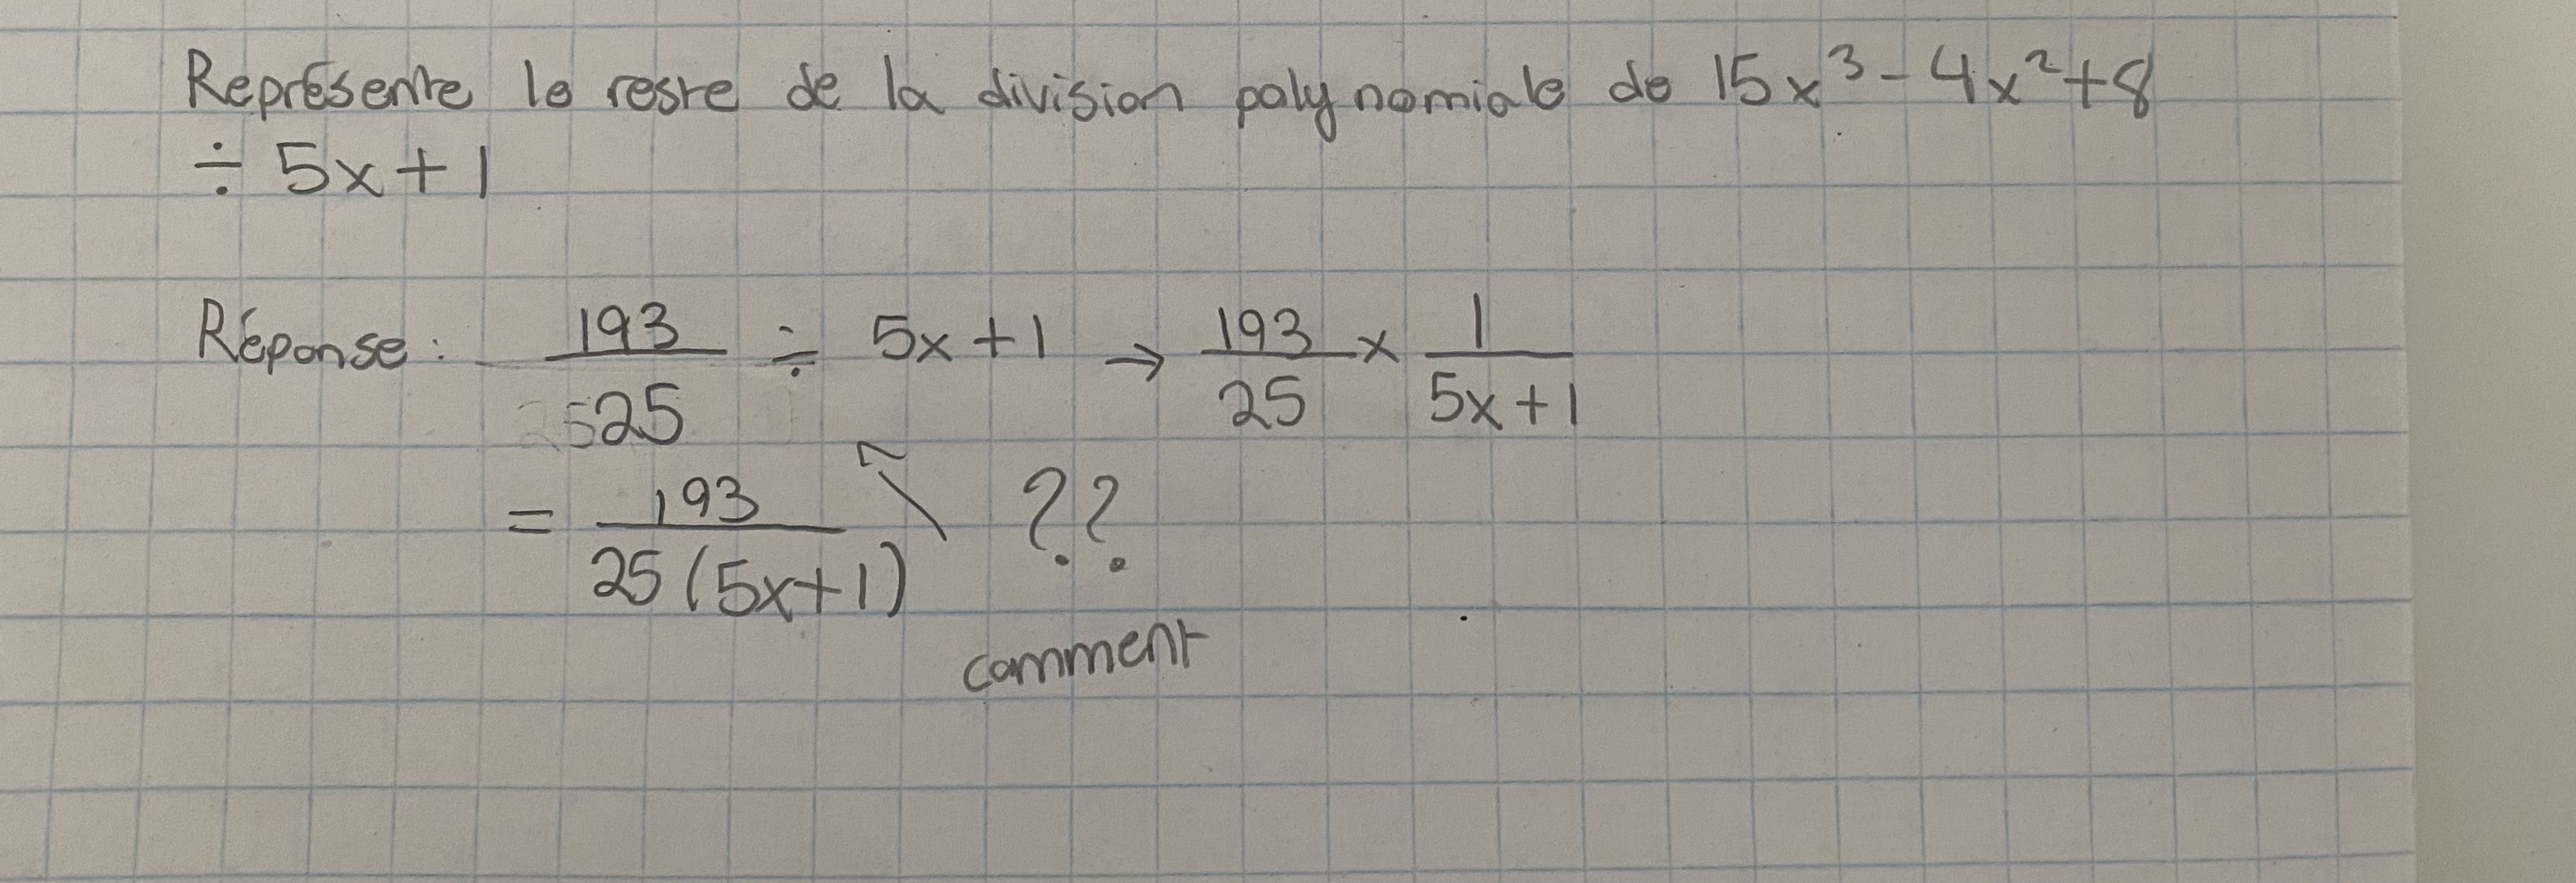 Représente le reste de la division polynomiale de 15x³ - 4x² + 8
÷ 5x + 1
Réponse : 193/25 ÷ 5x + 1 → 193/25 × 1/(5x + 1)
= 193/25(5x + 1) ??
comment